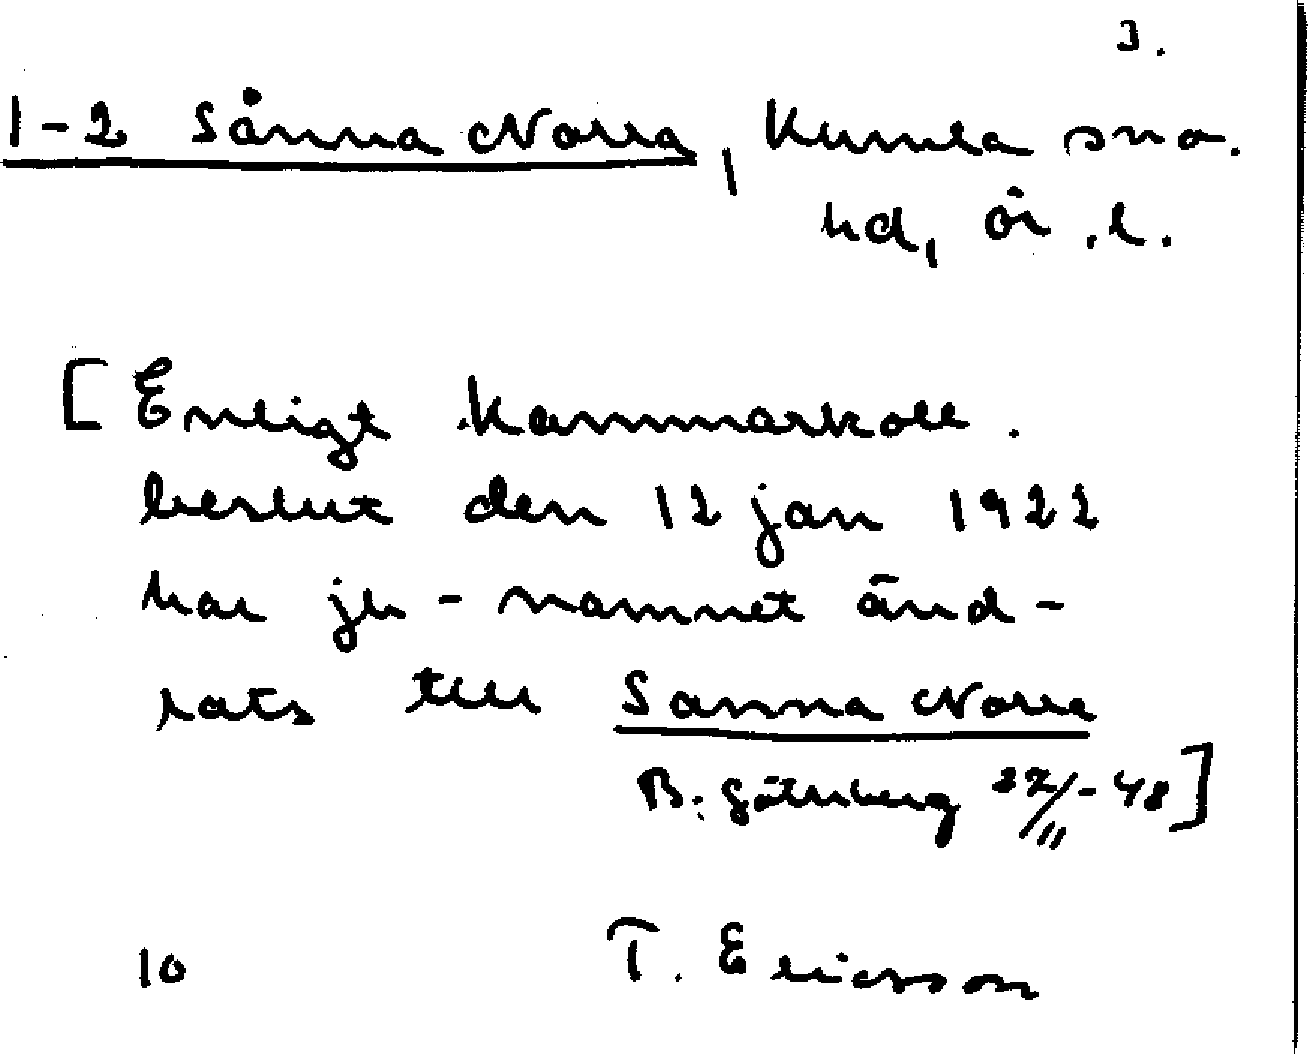 3.
1-2 Sånna Norra, Kumla sn o.
hd, ör. l.
[Enligt Kammarkoll.
beslut den 12 jan 1922
har jb-namnet änd-
rats till Sanna Norra
B. Götlberg 27/11-48]
10 T. Ericsson